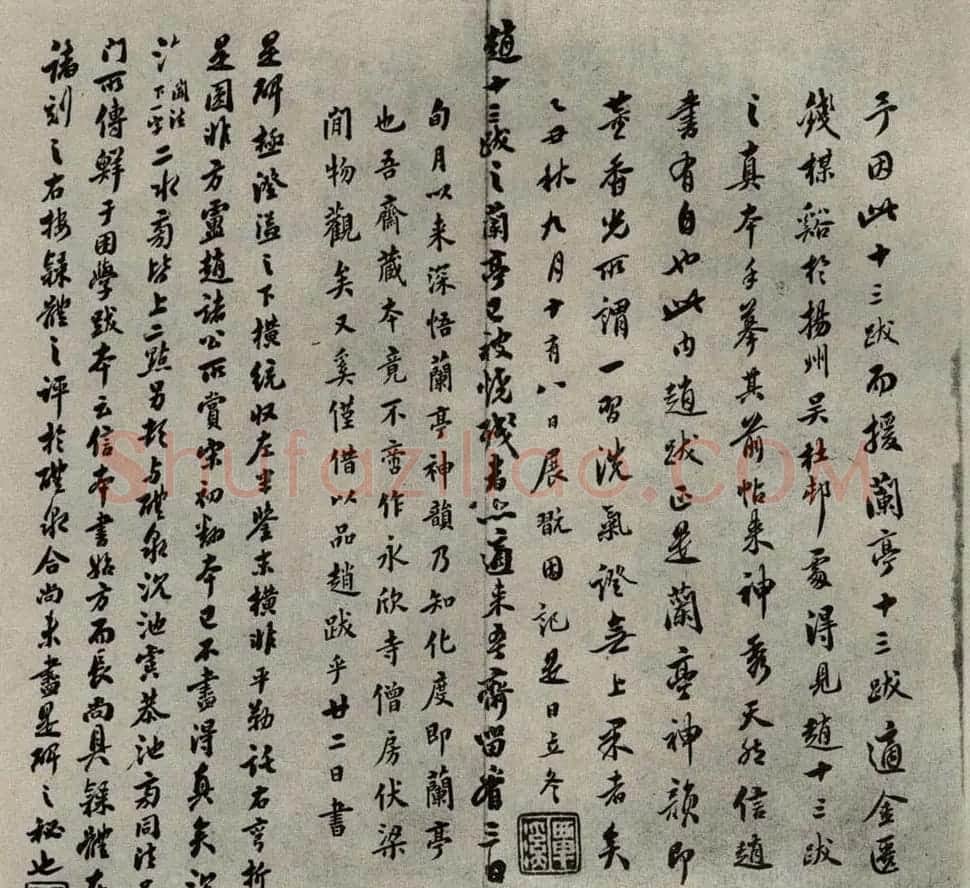 予因此十三跋而援蘭亭十三跋適金匱
錢楳谿於揚州吴杜邨處得見趙十三跋
之真本手摹其前帖来神秀天然信趙
書有自也此内趙跋正是蘭亭神韻即
董香光所謂一習洗氣證無上果者矣
乙丑秋九月十有八日展翫因記是日立冬
覃谿
趙十三跋之蘭亭已被燒殘者亦適来吾齋留看三日
旬月以来深悟蘭亭神韻乃知化度即蘭亭
也吾齋藏本竟不啻作永欣寺僧房伏梁
間物觀矣又奚僅借以品趙跋乎廿二日書
是碑極澄溢之下横統収左半鉴末横非平勒託右亨折
是圆非方盧趙諸公所賞宋初翻本已不盡得真矣沉
二水旁皆上二點另起与醴泉沉池寔恭池旁同法
门所傳鮮于困學跋本云信本書始方而長尚具隸體在
諸刻之右按隸體之評於醴泉合尚未盡是碑之秘也
Shufaziliao.COM